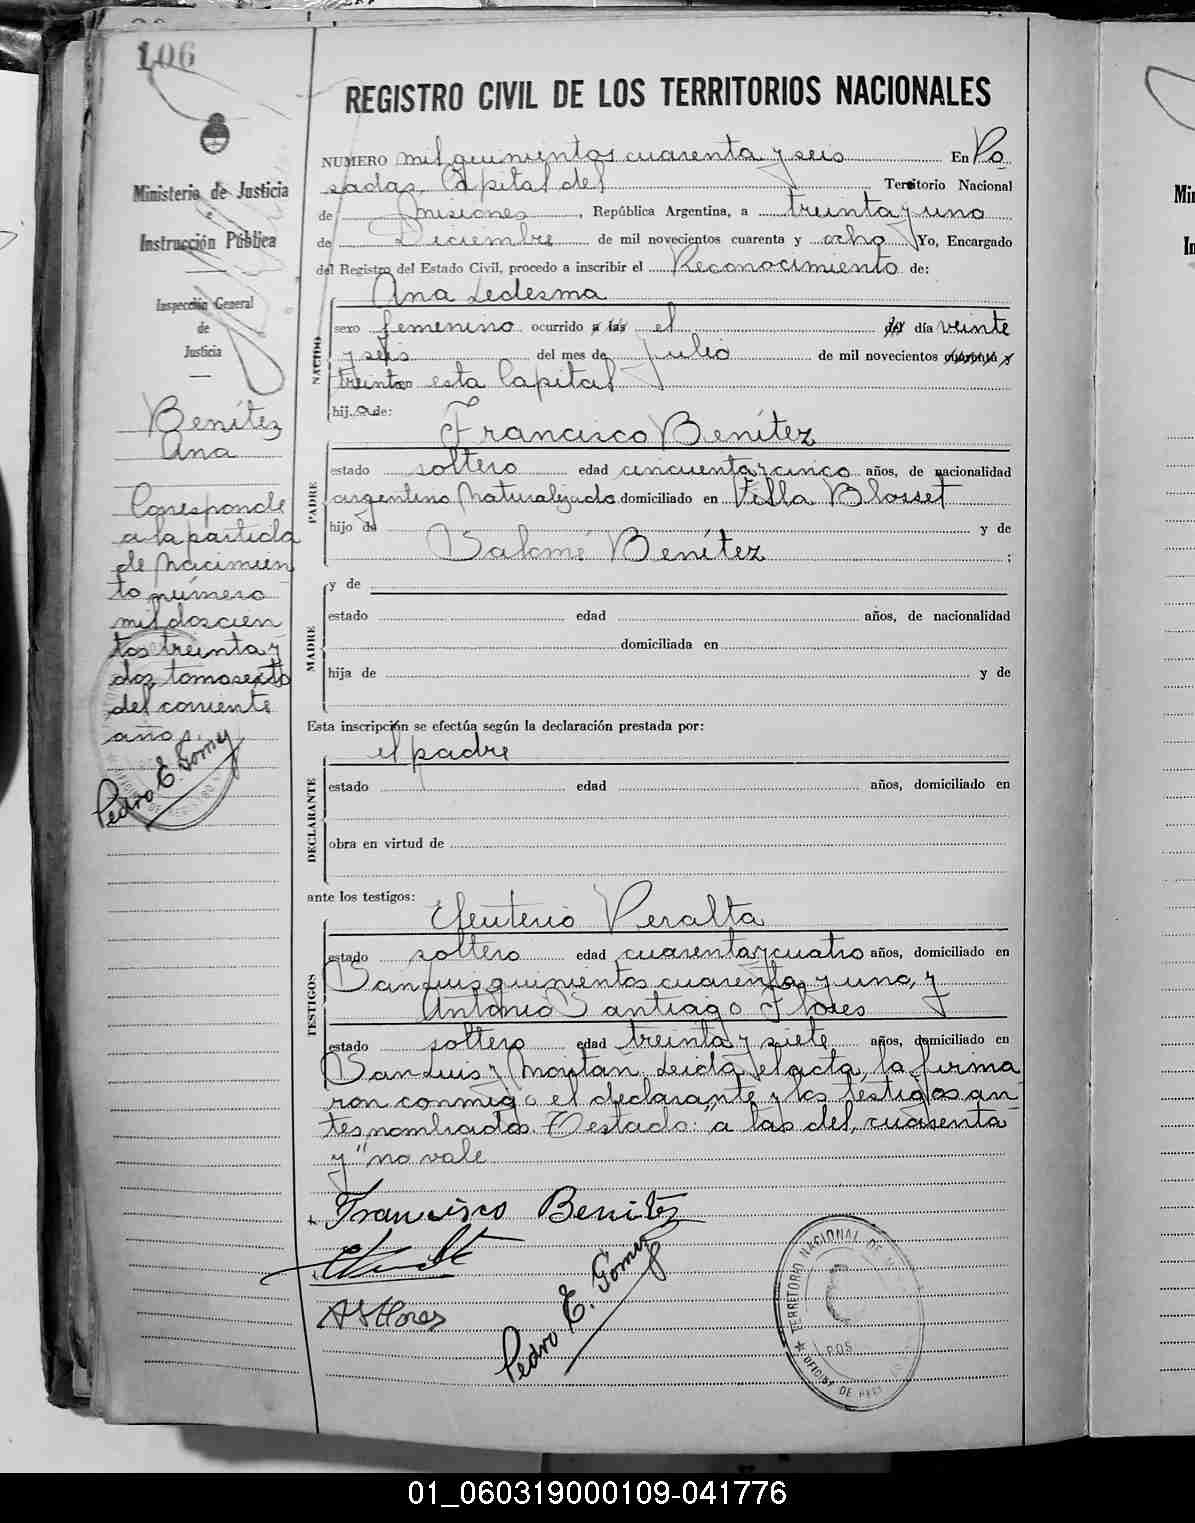 106
REGISTRO CIVIL DE LOS TERRITORIOS NACIONALES
Ministerio de Justicia
e
Instrucción Pública
Inspección General
de
Justicia
Benítez
Ana
Corresponde
a la partida
de nacimien
to número
mil doscien
tos treinta y
dos tomo sexto
del corriente
año.
Pedro E. Gomez
NUMERO mil quinientos cuarenta y seis En Po
sadas, Capital del Territorio Nacional
de Misiones, República Argentina, a treinta y uno
de Diciembre de mil novecientos cuarenta y ocho Yo, Encargado
del Registro del Estado Civil, procedo a inscribir el Reconocimiento de:
Ana Ledesma
NACIDO
sexo femenino ocurrido a las el del día veinte
y seis del mes de Julio de mil novecientos cuarenta y
treinta en esta Capital
hij a de:
Francisco Benítez
PADRE
estado soltero edad cincuenta y cinco años, de nacionalidad
argentino naturalizado domiciliado en Villa Blosset
hijo de y de
Salomé Benítez ;
y de
MADRE
estado edad años, de nacionalidad
domiciliada en
hija de y de
Esta inscripción se efectúa según la declaración prestada por:
el padre
DECLARANTE
estado edad años, domiciliado en
obra en virtud de
ante los testigos:
Eleuterio Peralta
TESTIGOS
estado soltero edad cuarenta y cuatro años, domiciliado en
San Luis quinientos cuarenta y uno, y
Antonio Santiago Flores
estado soltero edad treinta y siete años, domiciliado en
San Luis y Moritán. Leida el acta, la firma
ron conmigo el declarante y los testigos an
tes nombrados. Testado: "a las del, cuarenta
y" no vale
Francisco Benitez
A S Flores
Pedro E. Gómez
TERRITORIO NACIONAL DE
POS
OFICINA DE
Mi
I
01_060319000109-041776